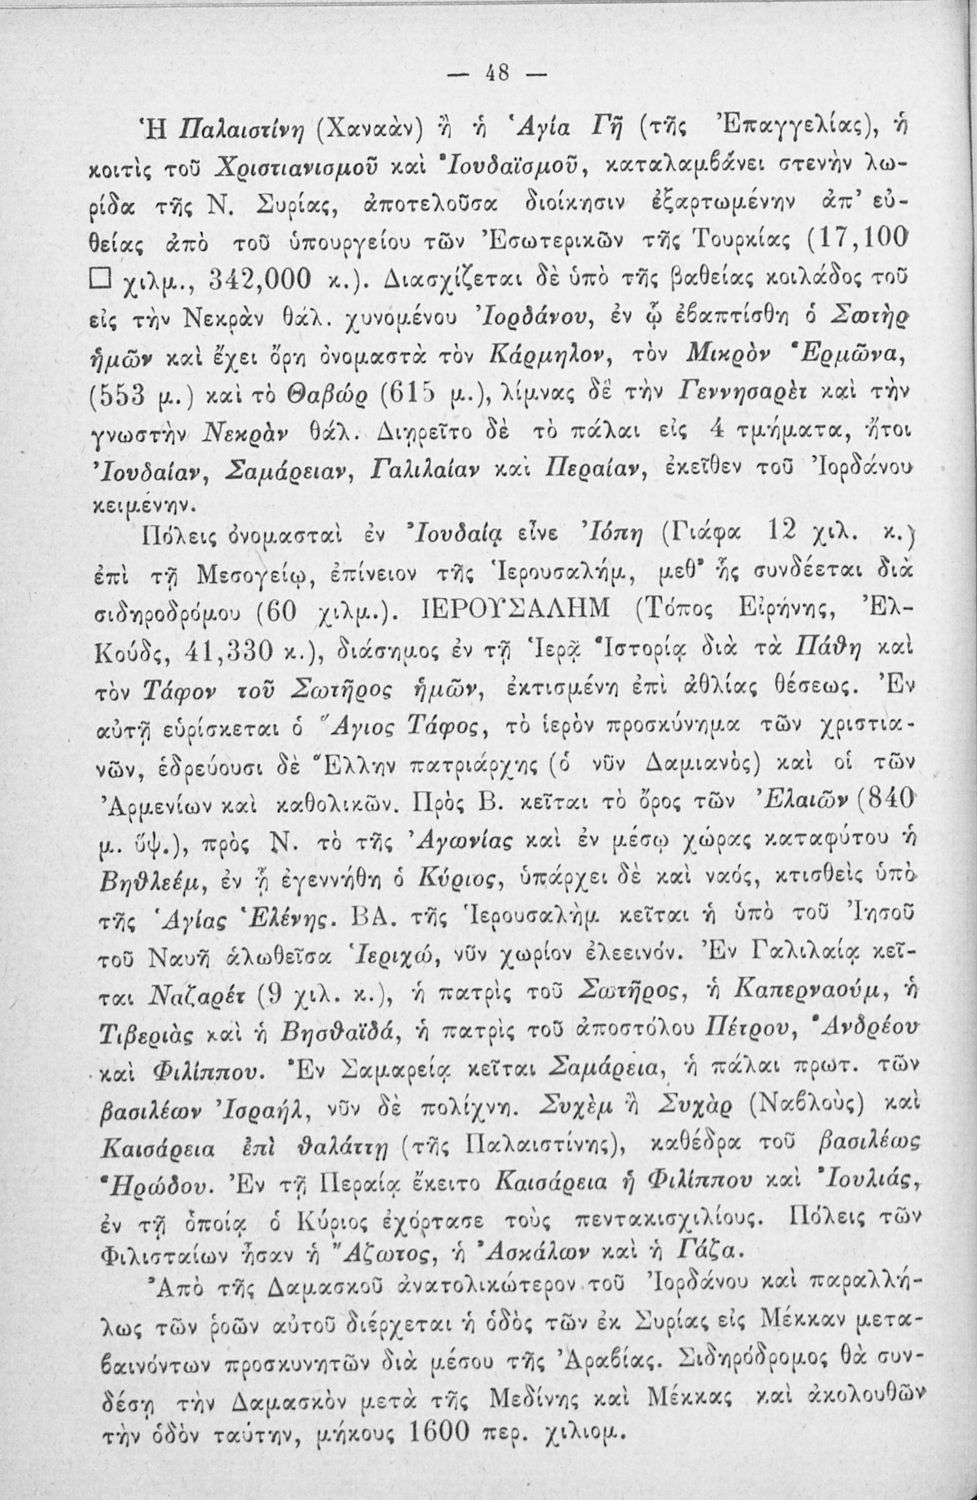 — 48 —
Ἡ Παλαιστίνη (Χαναὰν) ἢ ἡ Ἁγία Γῆ (τῆς Ἐπαγγελίας), ἡ
κοιτὶς τοῦ Χριστιανισμοῦ καὶ Ἰουδαϊσμοῦ, καταλαμβάνει στενὴν λω-
ρίδα τῆς Ν. Συρίας, ἀποτελοῦσα διοίκησιν ἐξαρτωμένην ἀπ’ εὐ-
θείας ἀπὸ τοῦ ὑπουργείου τῶν Ἐσωτερικῶν τῆς Τουρκίας (17,100
□ χιλμ., 342,000 κ.). Διασχίζεται δὲ ὑπὸ τῆς βαθείας κοιλάδος τοῦ
εἰς τὴν Νεκρὰν θάλ. χυνομένου Ἰορδάνου, ἐν ᾧ ἐβαπτίσθη ὁ Σωτὴρ
ἡμῶν καὶ ἔχει ὄρη ὀνομαστὰ τὸν Κάρμηλον, τὸν Μικρὸν Ἑρμῶνα,
(553 μ.) καὶ τὸ Θαβώρ (615 μ.), λίμνας δὲ τὴν Γεννησαρὲτ καὶ τὴν
γνωστὴν Νεκρὰν θάλ. Διῃρεῖτο δὲ τὸ πάλαι εἰς 4 τμήματα, ἤτοι
Ἰουδαίαν, Σαμάρειαν, Γαλιλαίαν καὶ Περαίαν, ἐκεῖθεν τοῦ Ἰορδάνου
κειμένην.
Πόλεις ὀνομασταὶ ἐν Ἰουδαίᾳ εἶνε Ἰόπη (Γιάφα 12 χιλ. κ.)
ἐπὶ τῇ Μεσογείῳ, ἐπίνειον τῆς Ἱερουσαλήμ, μεθ’ ἧς συνδέεται διὰ
σιδηροδρόμου (60 χιλμ.). ΙΕΡΟΥΣΑΛΗΜ (Τόπος Εἰρήνης, Ἐλ-
Κούδς, 41,330 κ.), διάσημος ἐν τῇ Ἱερᾷ Ἱστορίᾳ διὰ τὰ Πάθη καὶ
τὸν Τάφον τοῦ Σωτῆρος ἡμῶν, ἐκτισμένη ἐπὶ ἀθλίας θέσεως. Ἐν
αὐτῇ εὑρίσκεται ὁ Ἅγιος Τάφος, τὸ ἱερὸν προσκύνημα τῶν χριστια-
νῶν, ἑδρεύουσι δὲ Ἕλλην πατριάρχης (ὁ νῦν Δαμιανὸς) καὶ οἱ τῶν
Ἀρμενίων καὶ καθολικῶν. Πρὸς Β. κεῖται τὸ ὄρος τῶν Ἐλαιῶν (840
μ. ὕψ.), πρὸς Ν. τὸ τῆς Ἀγωνίας καὶ ἐν μέσῳ χώρας καταφύτου ἡ
Βηθλεέμ, ἐν ᾗ ἐγεννήθη ὁ Κύριος, ὑπάρχει δὲ καὶ ναός, κτισθεὶς ὑπὸ
τῆς Ἁγίας Ἑλένης. ΒΑ. τῆς Ἱερουσαλὴμ κεῖται ἡ ὑπὸ τοῦ Ἰησοῦ
τοῦ Ναυῆ ἁλωθεῖσα Ἱεριχώ, νῦν χωρίον ἐλεεινόν. Ἐν Γαλιλαίᾳ κεῖ-
ται Ναζαρέτ (9 χιλ. κ.), ἡ πατρὶς τοῦ Σωτῆρος, ἡ Καπερναούμ, ἡ
Τιβεριὰς καὶ ἡ Βησθαϊδά, ἡ πατρὶς τοῦ ἀποστόλου Πέτρου, Ἀνδρέου
καὶ Φιλίππου. Ἐν Σαμαρείᾳ κεῖται Σαμάρεια, ἡ πάλαι πρωτ. τῶν
βασιλέων Ἰσραήλ, νῦν δὲ πολίχνη. Συχὲμ ἢ Συχὰρ (Ναβλοὺς) καὶ
Καισάρεια ἐπὶ θαλάττῃ (τῆς Παλαιστίνης), καθέδρα τοῦ βασιλέως
Ἡρώδου. Ἐν τῇ Περαίᾳ ἔκειτο Καισάρεια ἡ Φιλίππου καὶ Ἰουλιάς,
ἐν τῇ ὁποίᾳ ὁ Κύριος ἐχόρτασε τοὺς πεντακισχιλίους. Πόλεις τῶν
Φιλισταίων ἦσαν ἡ Ἄζωτος, ἡ Ἀσκάλων καὶ ἡ Γάζα.
Ἀπὸ τῆς Δαμασκοῦ ἀνατολικώτερον τοῦ Ἰορδάνου καὶ παραλλή-
λως τῶν ῥοῶν αὐτοῦ διέρχεται ἡ ὁδὸς τῶν ἐκ Συρίας εἰς Μέκκαν μετα-
βαινόντων προσκυνητῶν διὰ μέσου τῆς Ἀραβίας. Σιδηρόδρομος θὰ συν-
δέσῃ τὴν Δαμασκὸν μετὰ τῆς Μεδίνης καὶ Μέκκας καὶ ἀκολουθῶν
τὴν ὁδὸν ταύτην, μήκους 1600 περ. χιλιομ.